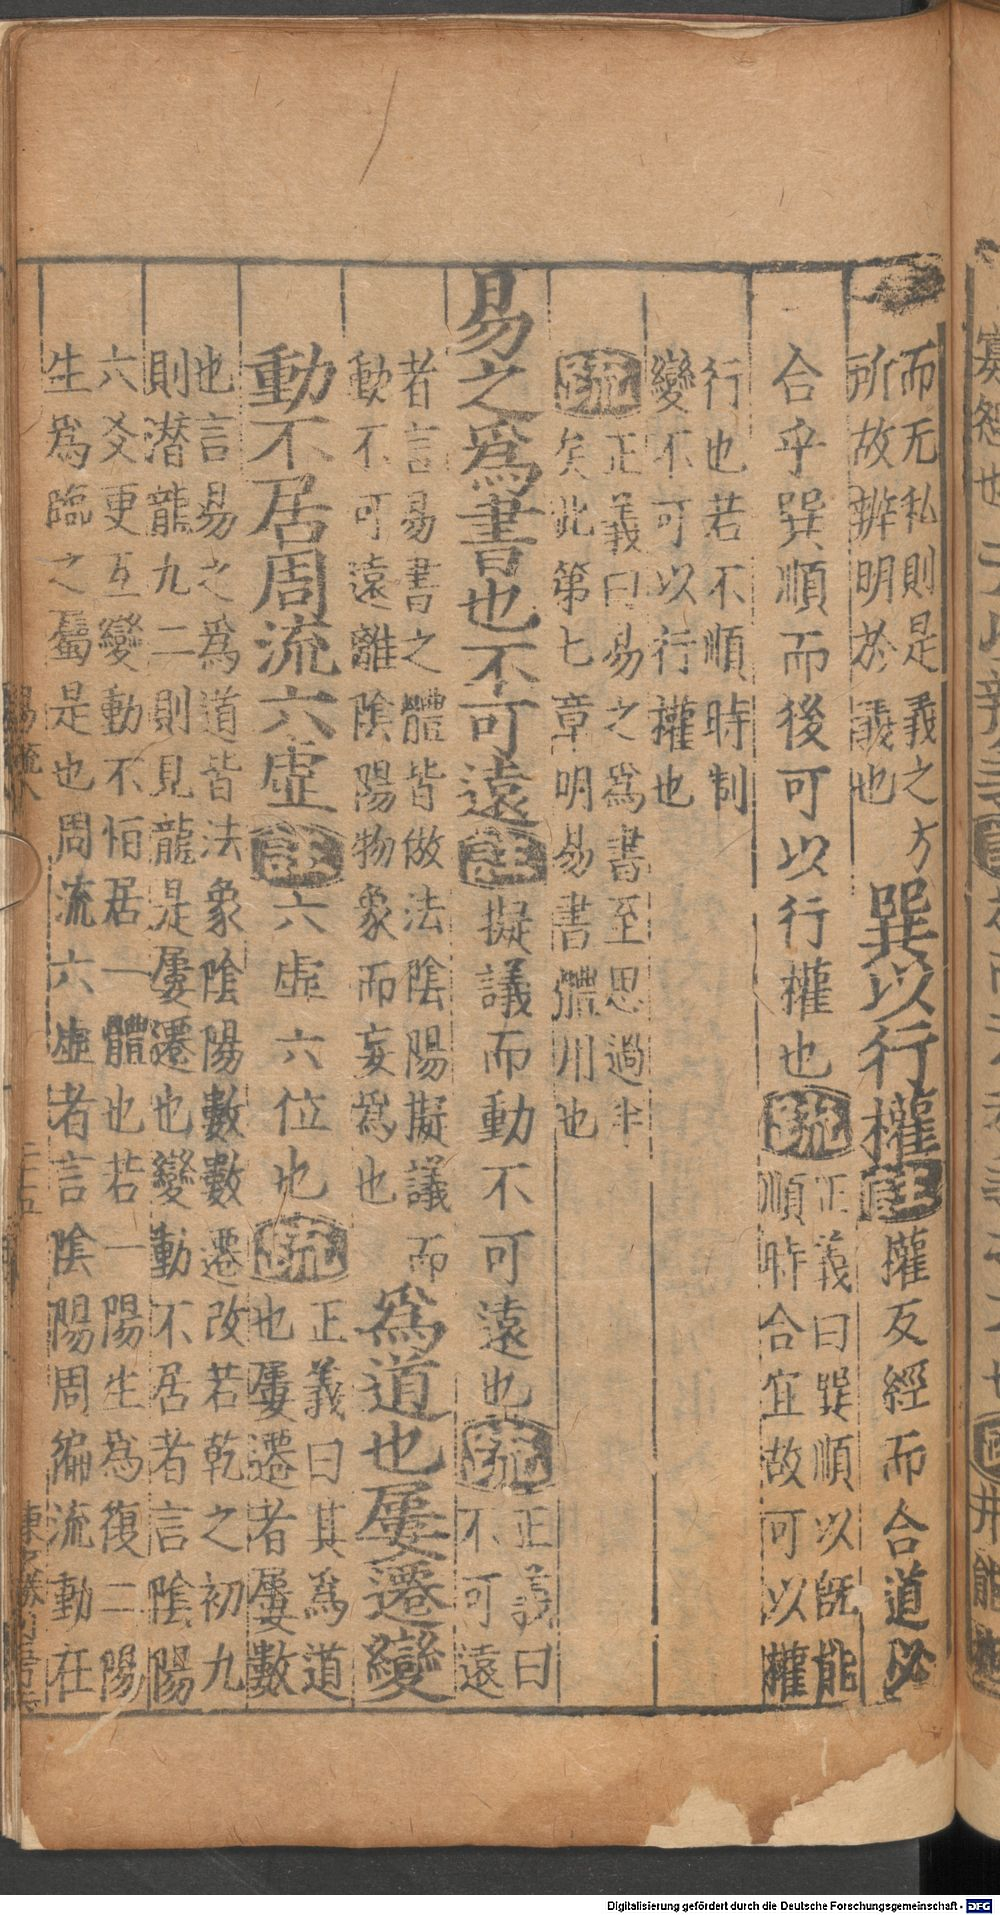 而无私則是義之方
所故辨明於義也
巽以行權
註
權反經而合道必
合乎巽順而後可以行權也
疏
正義曰巽順以既能
順時合宜故可以權
行也若不順時制
變不可以行權也
疏
正義曰易之為書至思過半
矣此第七章明易書體用也
易之為書也不可遠
註
擬議而動不可遠也
疏
正義曰
不可遠
者言易書之體皆倣法陰陽擬議而
動不可遠離陰陽物象而妄為也
為道也屢遷變
動不居周流六虛
註
六虛六位也
疏
正義曰其為道
也屢遷者屢數
也言易之為道皆法象陰陽數數遷改若乾之初九
則潜龍九二則見龍是屢遷也變動不居者言陰陽
六爻更互變動不恒居一體也若一陽生為復二陽
生為臨之屬是也周流六虛者言陰陽周徧流動在
易疏八
二十五
Digitalisierung gefördert durch die Deutsche Forschungsgemeinschaft - DFG